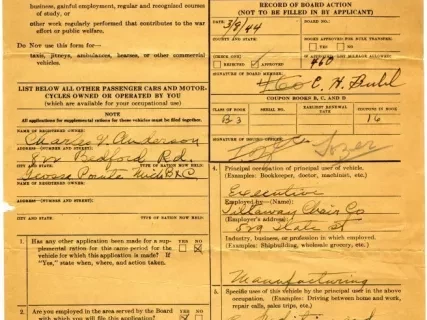 business, gainful employment, regular and recognized courses
of study, or
other work regularly performed that contributes to the war
effort or public welfare.
Do Not use this form for—
taxis, jitneys, ambulances, hearses, or other commercial
vehicles.
LIST BELOW ALL OTHER PASSENGER CARS AND MOTOR-
CYCLES OWNED OR OPERATED BY YOU
(which are available for your occupational use)
NOTE
All applications for supplemental rations for these vehicles must be filed together.
NAME OF REGISTERED OWNER:
Charles V. Anderson
ADDRESS—(NUMBER AND STREET):
822 Bedford Rd.
CITY AND STATE: TYPE OF RATION NOW HELD:
Grosse Pointe Mich B&C
NAME OF REGISTERED OWNER:
ADDRESS—(NUMBER AND STREET):
CITY AND STATE: TYPE OF RATION NOW HELD:
1. Has any other application been made for a sup-
plemental ration for this same period for the
vehicle for which this application is made? If
"Yes," state when, where, and action taken.
YES NO
2. Are you employed in the area served by the Board
with which you will file this application?
YES NO
RECORD OF BOARD ACTION
(NOT TO BE FILLED IN BY APPLICANT)
DATE: 3/9/44 BOARD NO.:
COUNTY AND STATE:
YES NO
CHECK ONE:
REJECTED APPROVED
460
SIGNATURE OF BOARD MEMBER:
460 C. H.
COUPON BOOKS B, C, AND D
CLASS OF BOOK SERIAL NO. EARLIEST RENEWAL DATE COUPONS IN BOOK
B-3 16
SIGNATURE OF ISSUING OFFICER:
4. Principal occupation of principal user of vehicle.
(Examples: Bookkeeper, doctor, machinist, etc.)
Executive
Employed by—(Name):
(Employer's address):
State St
Industry, business, or profession in which employed.
(Examples: Shipbuilding, wholesale grocery, etc.)
Manufacturing
5. Specific use of this vehicle by the principal user in the above
occupation. (Examples: Driving between home and work,
repair calls, sales trips, etc.)